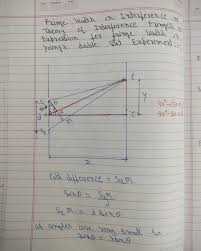 Fringe Width in Interference
Theory of Interference Fringes
Expression for fringe width in
Young's double slit Experiment
P
y
S₁
d
M
C
S₂
D
Path difference = S₂M
Sinθ = S₂M
d
S₂M = d Sinθ
as angles are very small so
Sinθ = tanθ